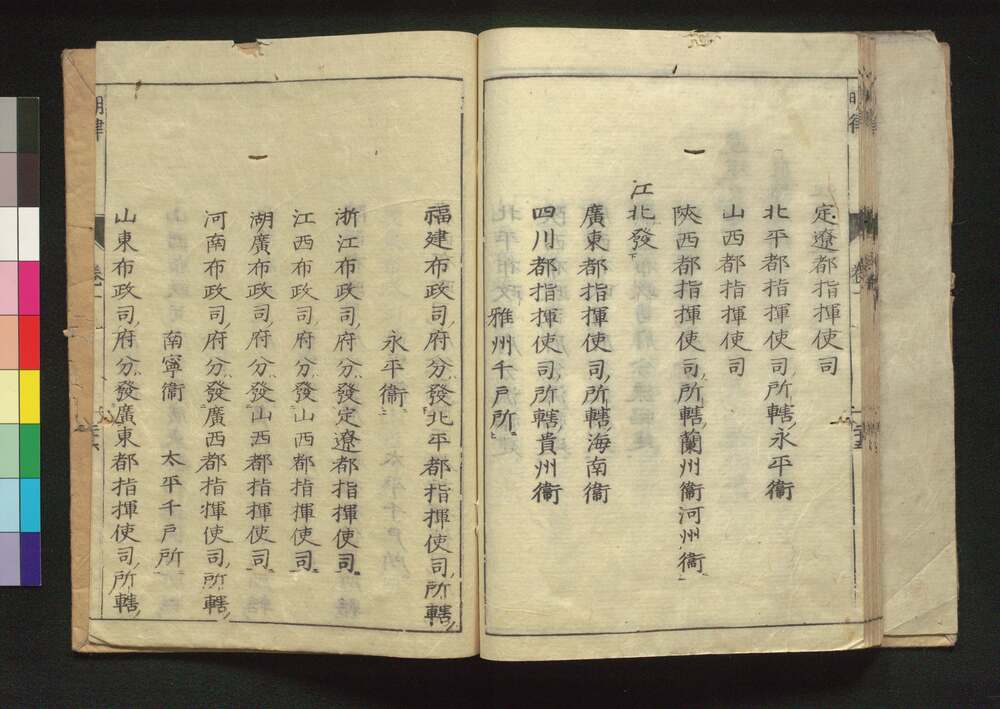 明律
卷一
定遼都指揮使司
北平都指揮使司所轄永平衞
山西都指揮使司
陝西都指揮使司所轄蘭州衞河州衞
江北發
廣東都指揮使司所轄海南衞
四川都指揮使司所轄貴州衞
雅州千戶所
福建布政司府分發北平都指揮使司所轄
永平衞
浙江布政司府分發定遼都指揮使司
江西布政司府分發山西都指揮使司
湖廣布政司府分發山西都指揮使司
河南布政司府分發廣西都指揮使司所轄
南寧衞 太平千戶所
山東布政司府分發廣東都指揮使司所轄
明律
卷一